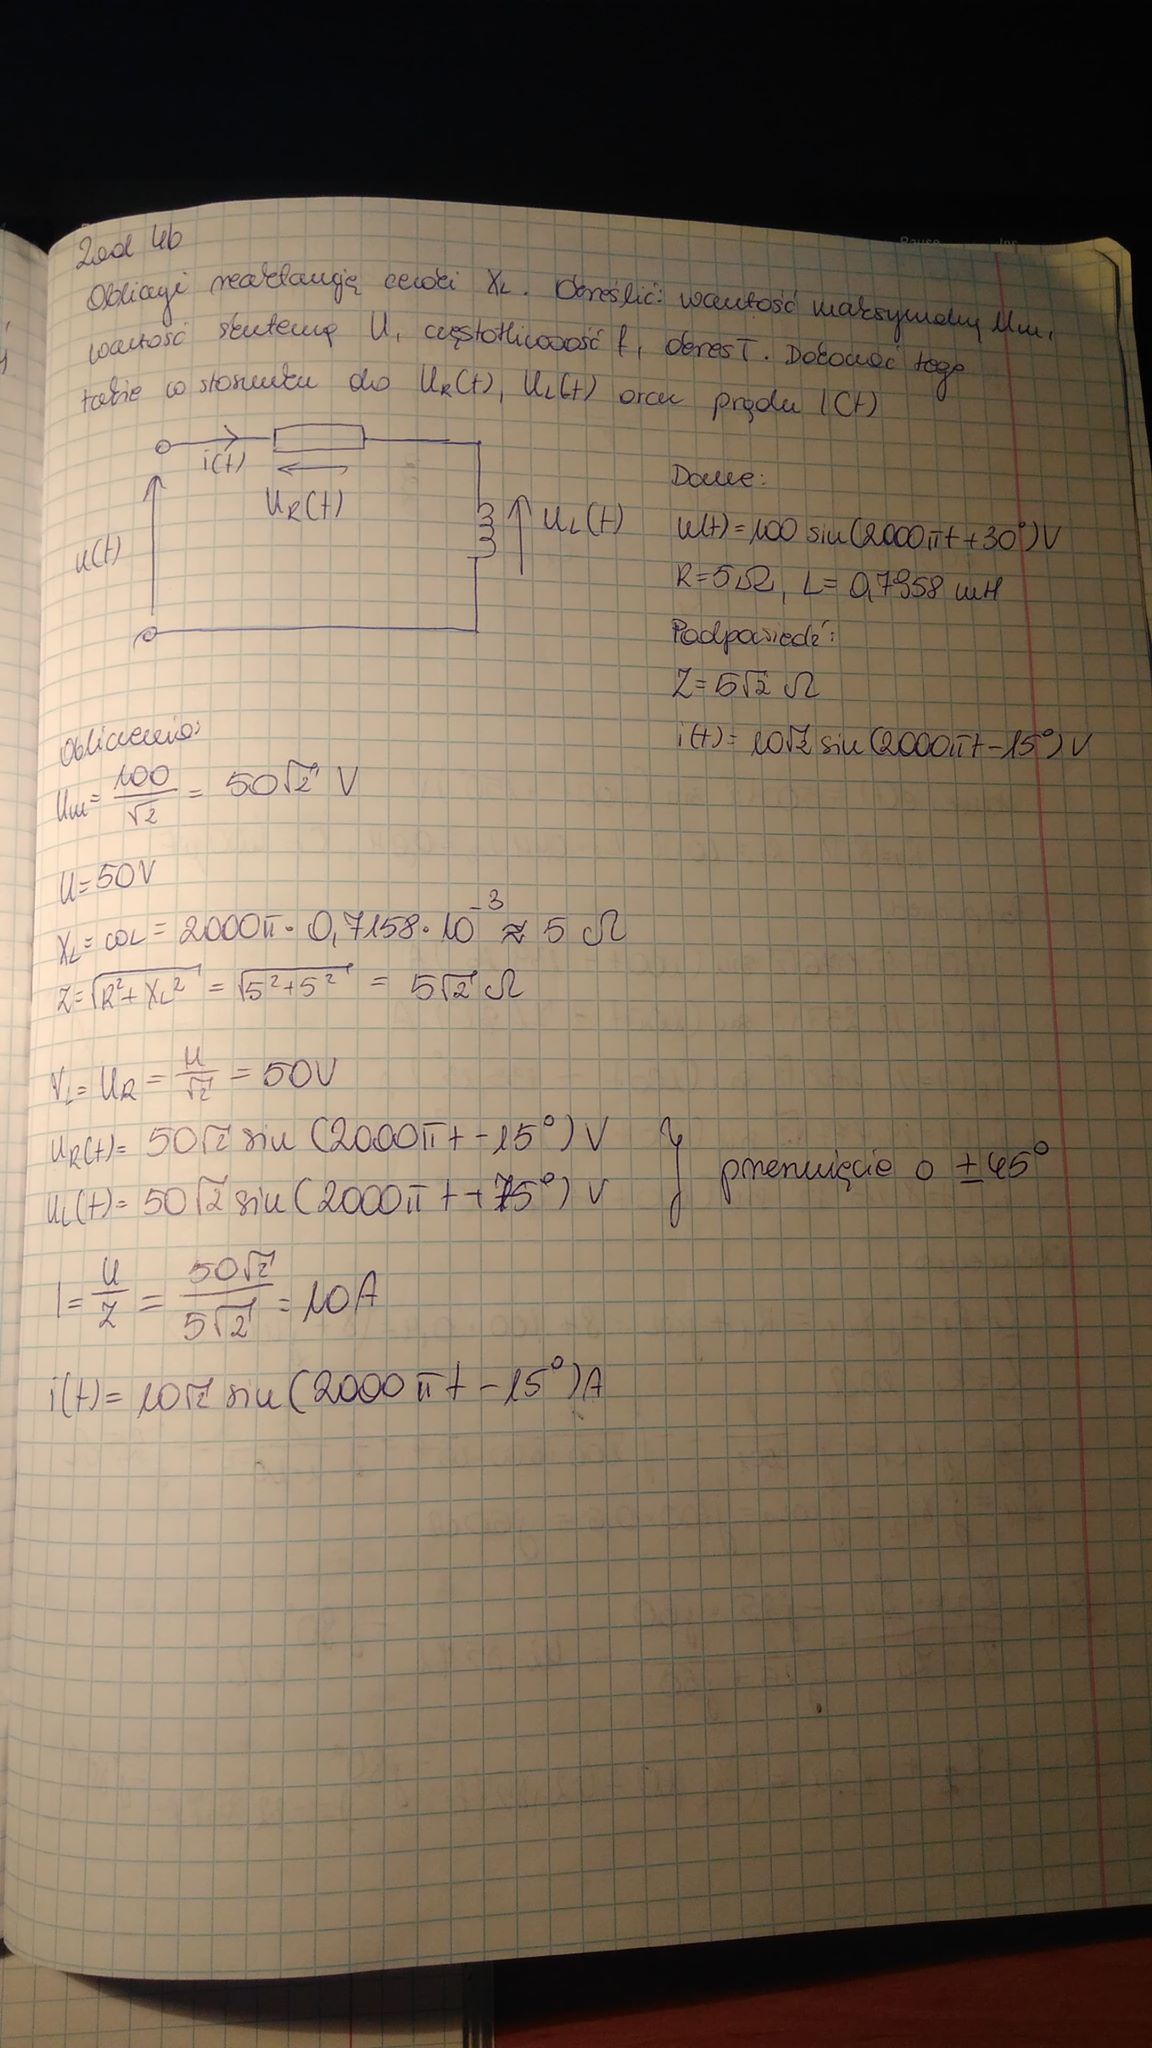 Zad 4b
Obliczyć reaktancję cewki XL. Określić: wartość maksymalną Um,
wartość skuteczną U, częstotliwość f, okres T. Dokonać tego
także w stosunku do UR(t), UL(t) oraz prądu i(t)
i(t)
UR(t)
u(t)
UL(t)
Dane:
u(t)=100 sin(2000πt+30°)V
R=5Ω, L=0,7958 mH
Podpowiedź:
Z=5√2 Ω
i(t)=10√2 sin(2000πt-15°)V
Obliczenia:
Um=100/√2=50√2 V
U=50V
XL=ωL=2000π·0,7158·10⁻³≈5 Ω
Z=√(R²+XL²)=√(5²+5²)=5√2 Ω
VL=UR=U/√2=50V
UR(t)=50√2 sin(2000πt-15°)V
UL(t)=50√2 sin(2000πt+75°)V
przesunięcie o ±45°
I=U/Z=50√2/5√2=10A
i(t)=10√2 sin(2000πt-15°)A